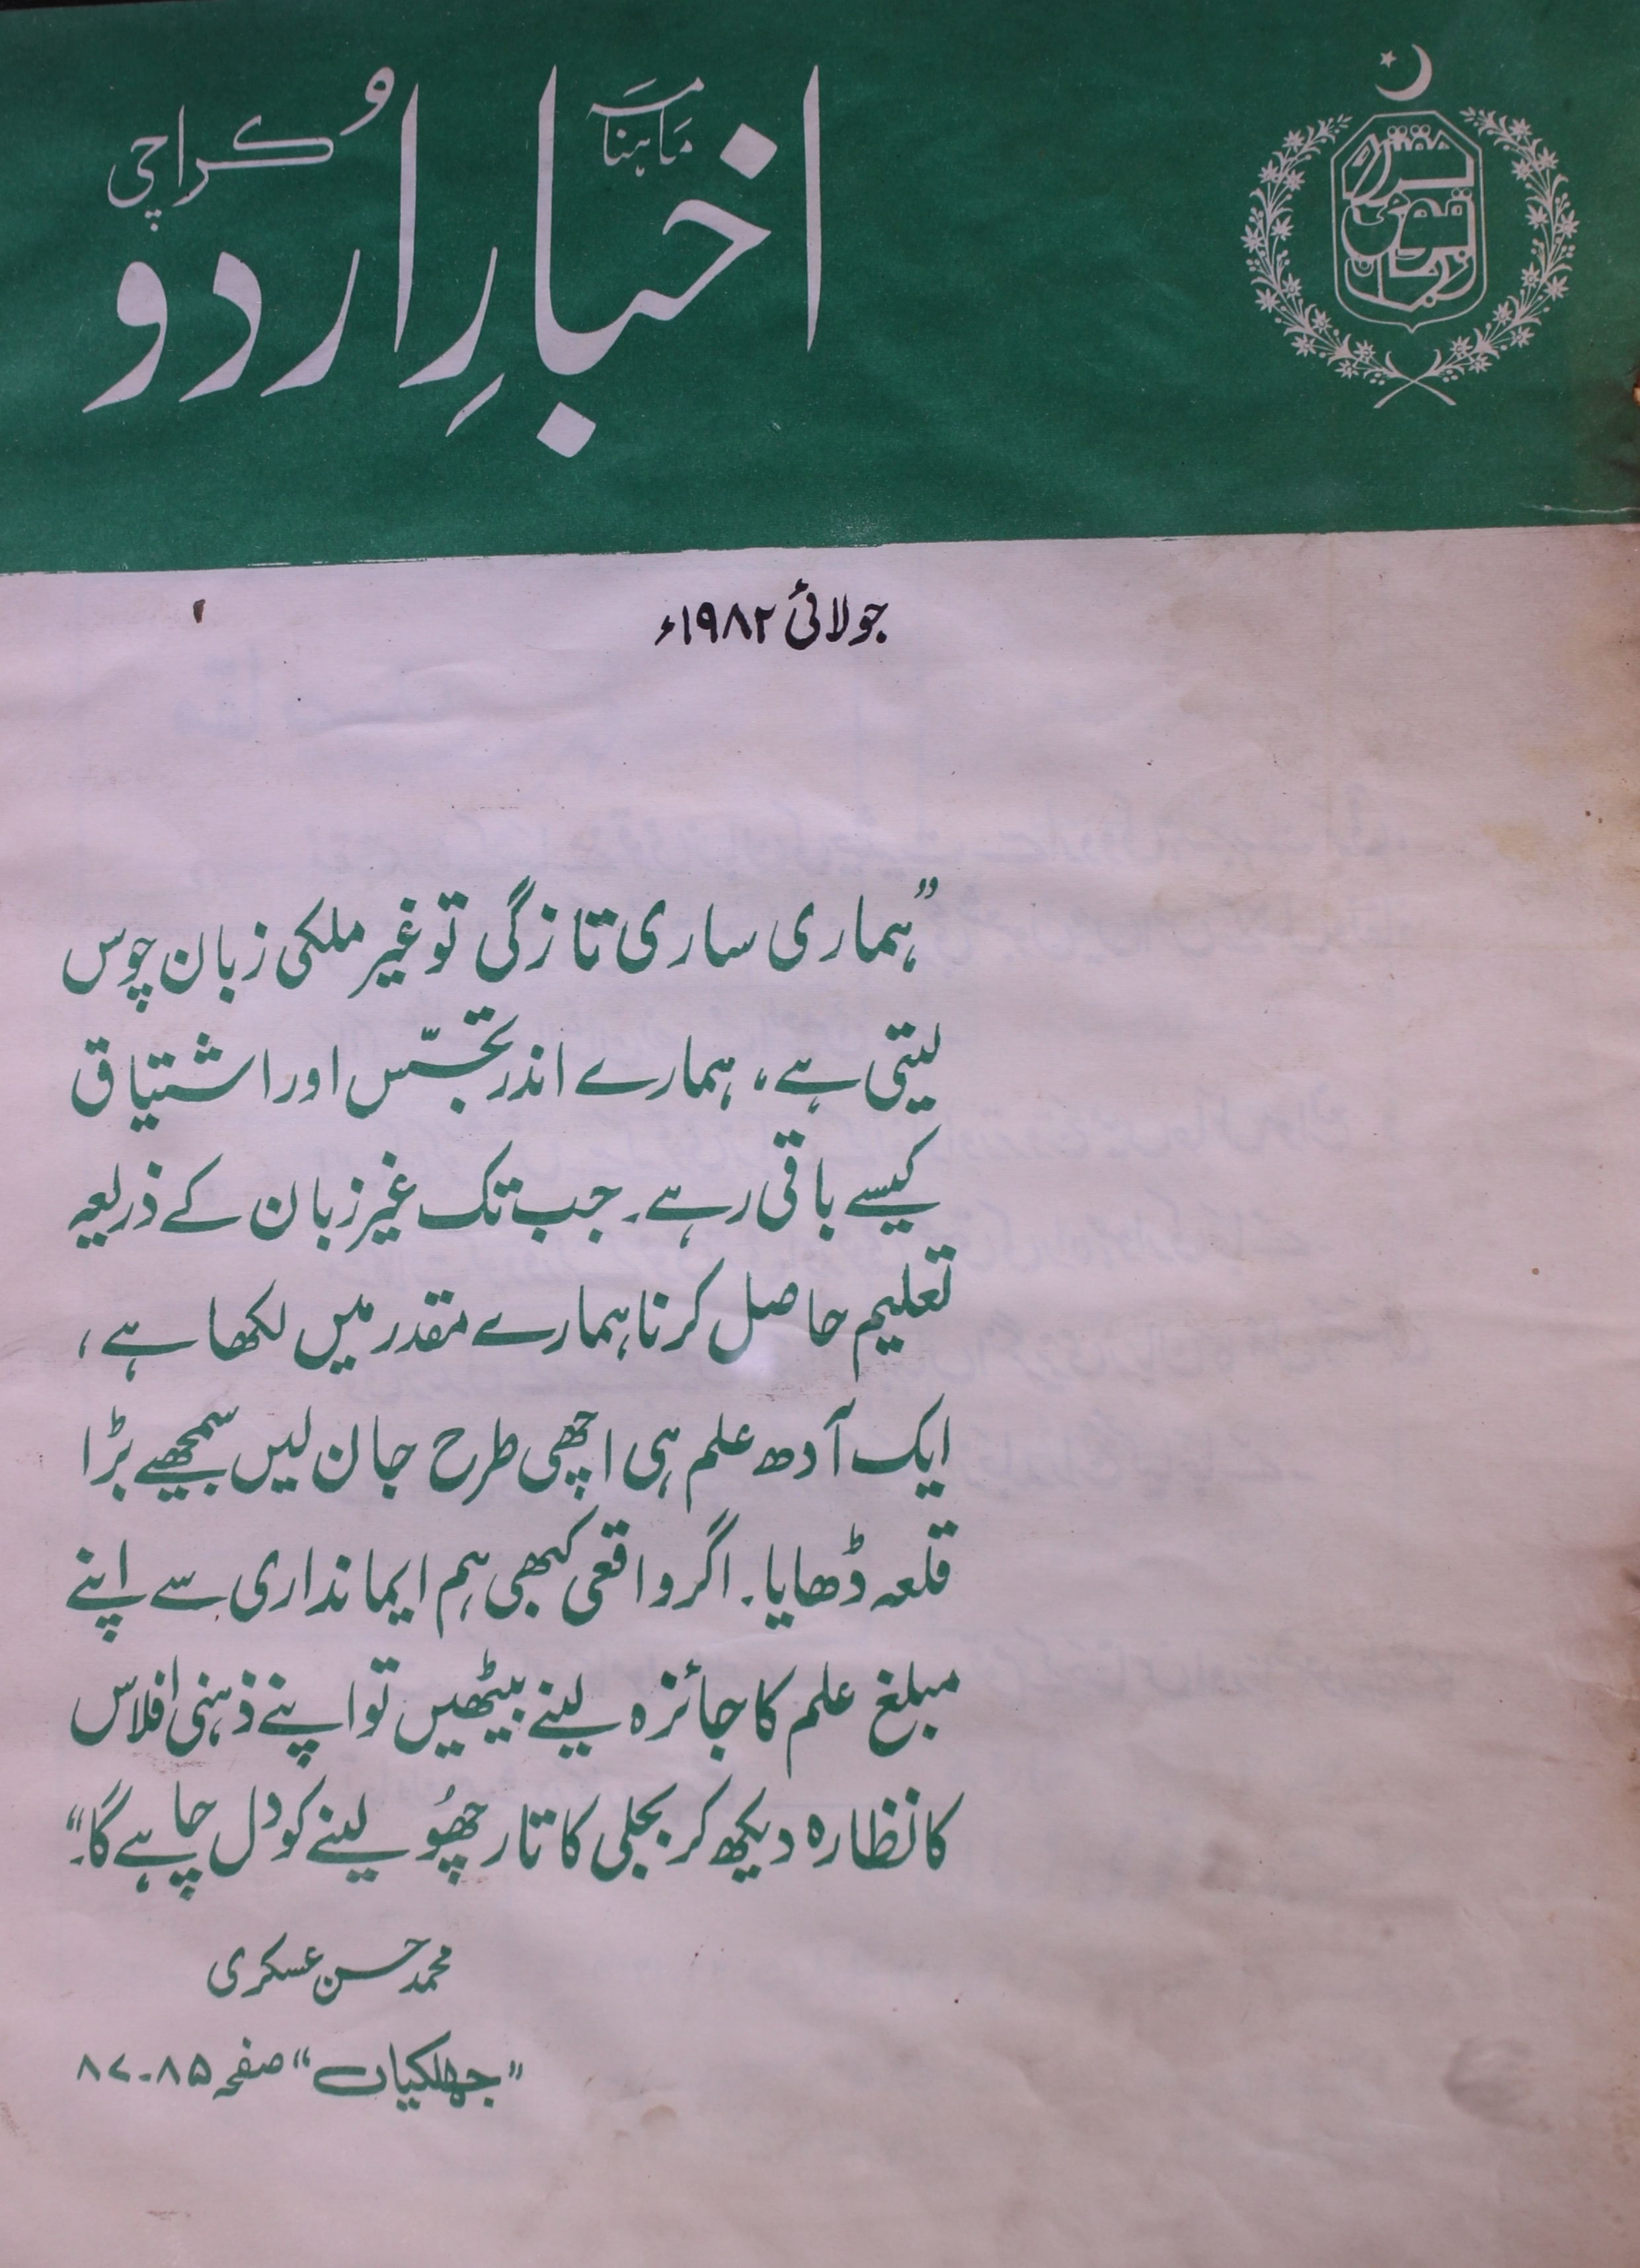 ماہنامہ
اخبارِ اُردو
کراچی
مقتدرہ
قومی
زبان
جولائی ۱۹۸۲ء
”ہماری ساری تازگی تو غیر ملکی زبان چوس
لیتی ہے، ہمارے اندر تجسّس اور اشتیاق
کیسے باقی رہے۔ جب تک غیر زبان کے ذریعہ
تعلیم حاصل کرنا ہمارے مقدر میں لکھا ہے،
ایک آدھ علم ہی اچھی طرح جان لیں سمجھیے بڑا
قلعہ ڈھایا۔ اگر واقعی کبھی ہم ایمانداری سے اپنے
مبلغ علم کا جائزہ لینے بیٹھیں تو اپنے ذہنی افلاس
کا نظارہ دیکھ کر بجلی کا تار چھُو لینے کو دل چاہے گا۔“
محمد حسن عسکری
”جھلکیاں“ صفحہ ۸۵-۸۷